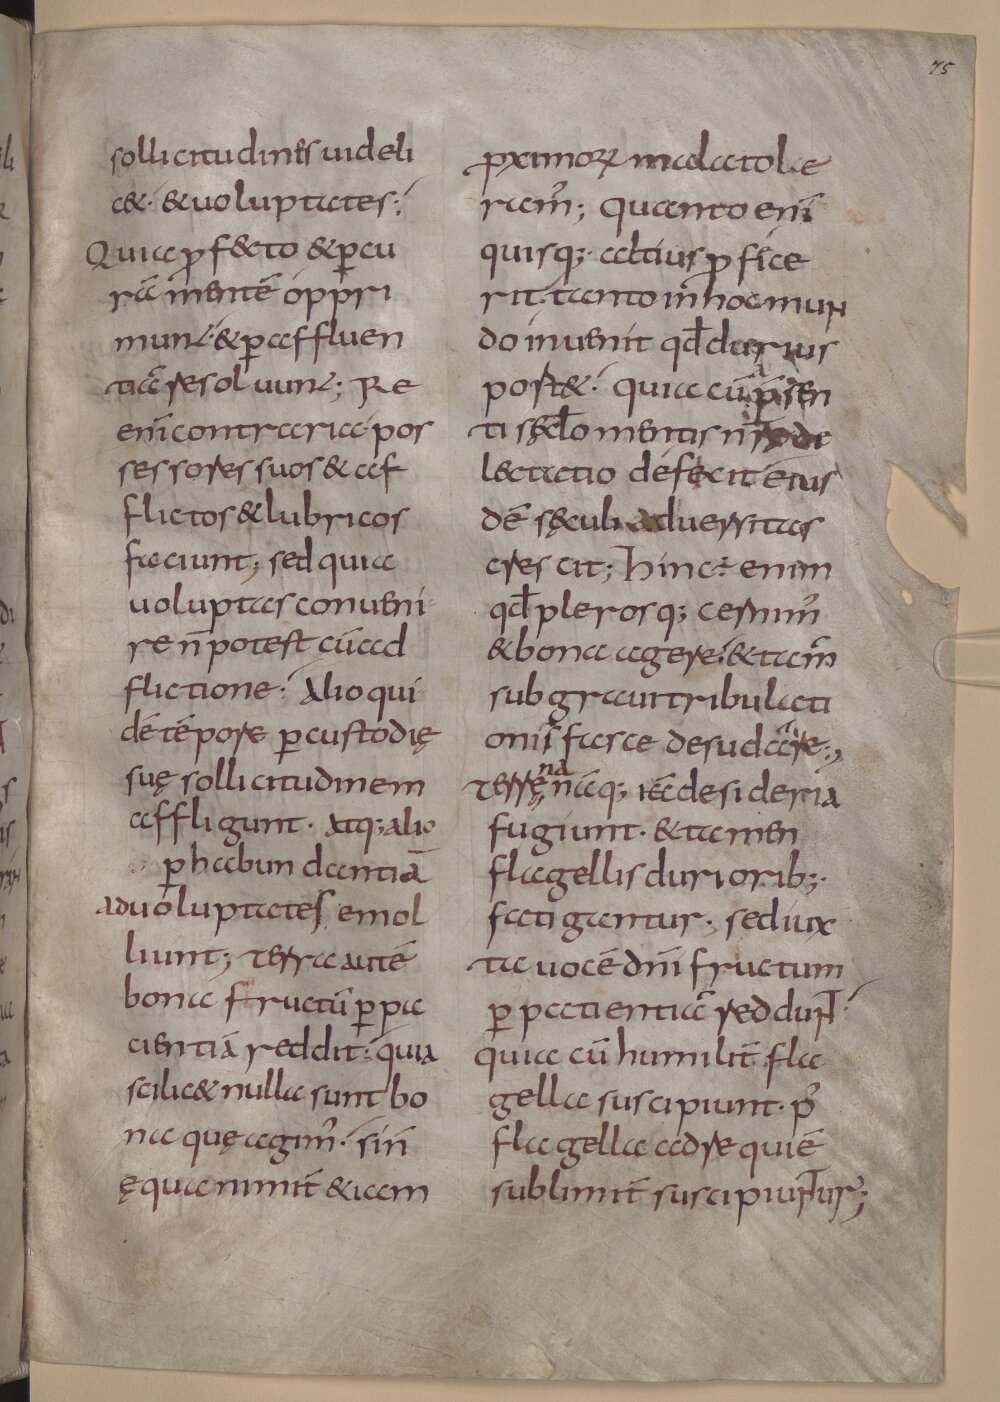 75
sollicitudines uideli
c&· &uoluptates;
Quia ꝓf&cto &ꝑcu
rā mentē oppri
munt·&ꝑaffluen
tiā resoluunt; Re
enī contraria pos
sessores suos &af
flictos &lubricos
faciunt; sed quia
uoluptas conueni
re n̄ potest cū ad
flictione· Alioqui
dē tēpore ꝑcustodię
suę sollicitudinem
affligunt· Atq; alio
ꝑhabundantiā
aduoluptates emol
liunt; Terra autē
bona fructū ꝑpa
cientiā reddit· quia
scilic& nulla sunt bo
na quę agim̄· sin̄
ęquanimit̄ &iam
ꝓximoꝝ mala tole
ram̄; quanto enī
quisq; altius ꝓfice
rit· tanto in hoc mun
do inuenit qd̄ durius
port&· quia cū p̄sen
ti sęclo mentis nr̄ę de
lectatio deficit eius
dē sęculi aduersitas
crescit; Hinc· enim
qd̄ plerosq; cernim̄
&bona agere· &tam̄
subgraui tribulati
onis fasce desudare·
Terrena nāq; iā desideria
fugiunt· &tamen
flagellis durioribꝫ·
fatigantur· sediux
ta uocē dn̄i fructum
ꝑpatientiā reddunt·
quia cū humilit̄ fla
gella suscipiunt· p̄
flagella adrequiē
sublimit̄ suscipiuntur;